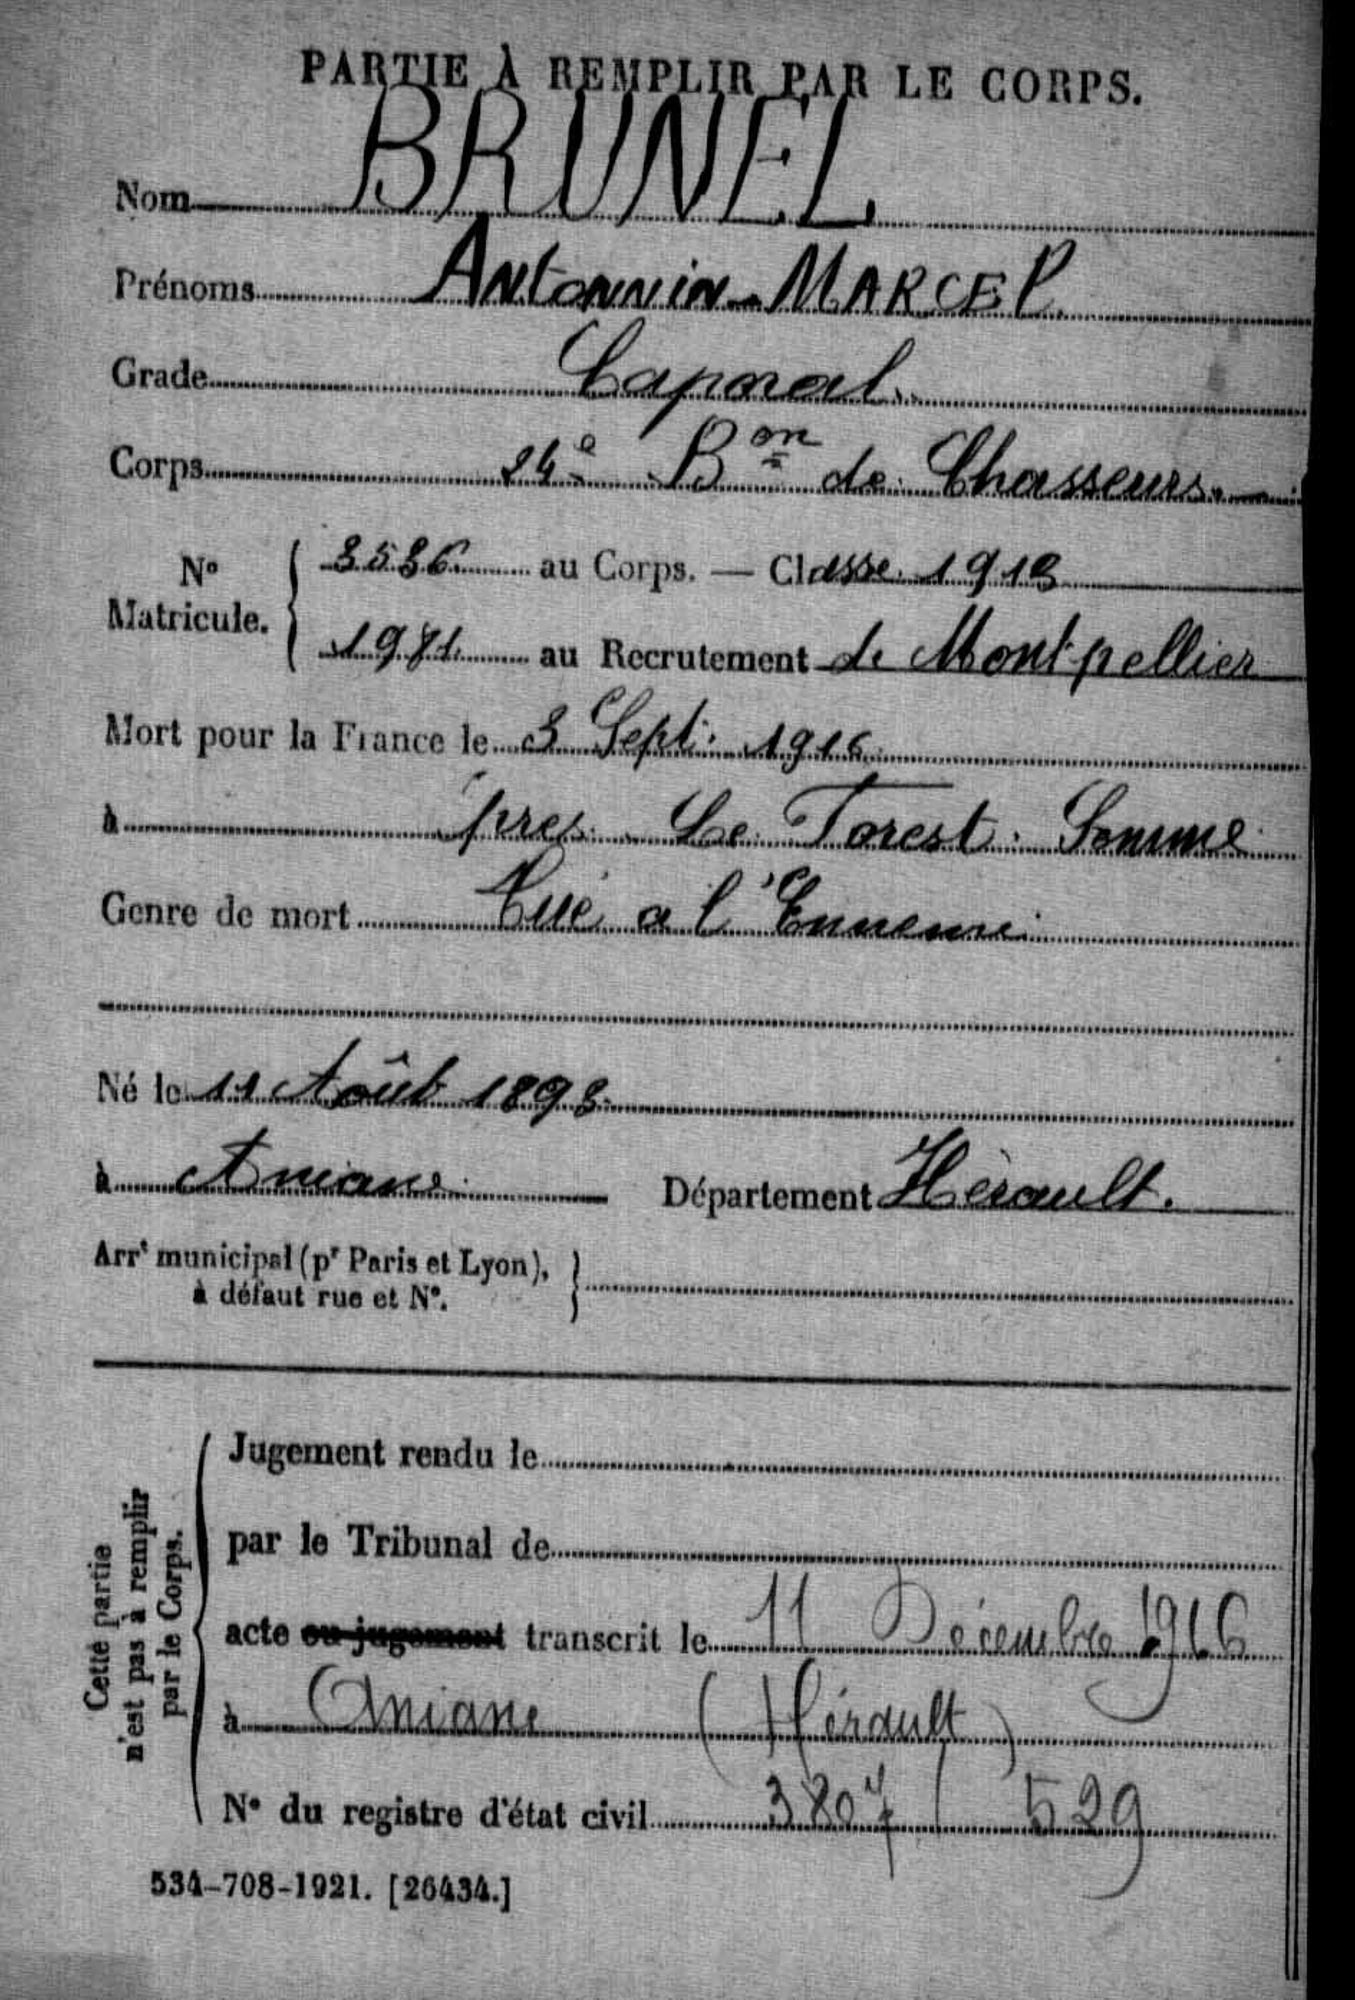 PARTIE À REMPLIR PAR LE CORPS.
Nom BRUNEL
Prénoms Antonnin - MARCEL
Grade Caporal.
Corps 24e Bon de Chasseurs.
No Matricule. { 3536 au Corps. — Classe 1913
1981 au Recrutement de Montpellier
Mort pour la France le 3 Sept. 1916
à pres Le Forest. Somme
Genre de mort Tué a l'Ennemi
Né le 11 Août 1893
à Aniane Département Hérault.
Arrt municipal (pr Paris et Lyon), à défaut rue et No. }
Cette partie n'est pas à remplir par le Corps.
Jugement rendu le
par le Tribunal de
acte ou jugement transcrit le 11 Décembre 1916
à Aniane (Hérault)
No du registre d'état civil 3807/529
534-708-1921. [26434.]